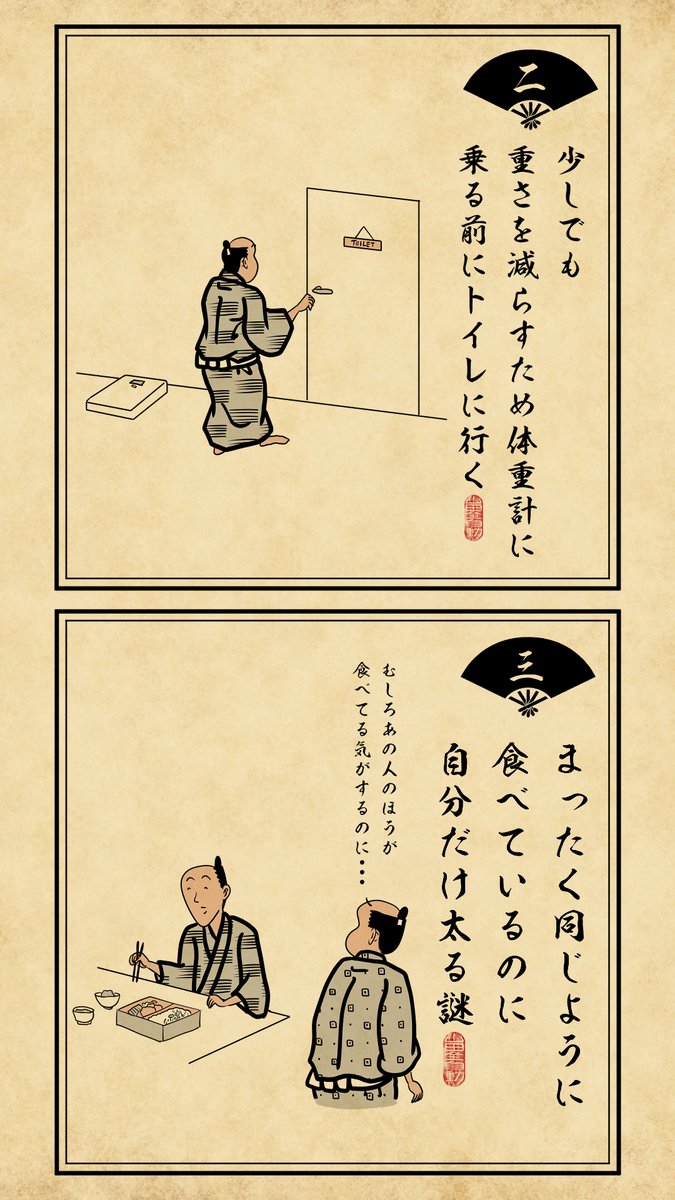 二
少しでも
重さを減らすため体重計に
乗る前にトイレに行く
TOILET
三
まったく同じように
食べているのに
自分だけ太る謎
むしろあの人のほうが
食べてる気がするのに・・・